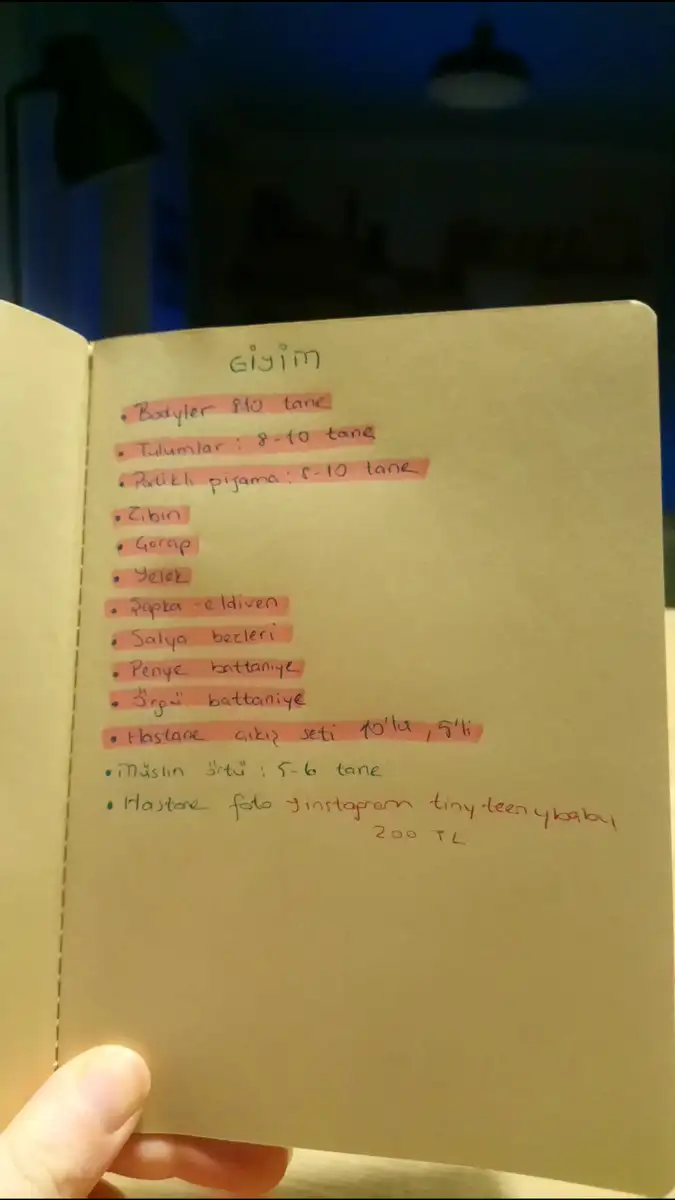 Giyim
• Bodyler 8-10 tane
• Tulumlar : 8-10 tane
• Patikli pijama : 8-10 tane
• Zıbın
• Çorap
• Yelek
• Şapka - eldiven
• Salya bezleri
• Penye battaniye
• Örgü battaniye
• Hastane çıkış seti 10'lu, 5'li
• Müslin örtü : 5-6 tane
• Hastane foto → instagram tiny-teenybaby
200 TL